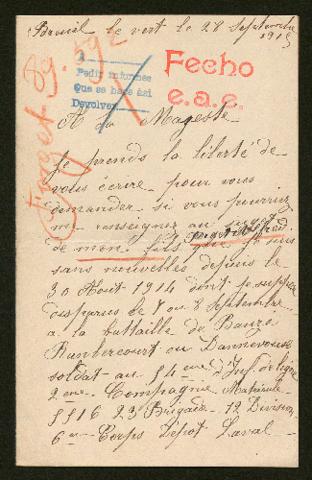 Breuil le vert le 28 Septembre
1915
Forget Pg. 592
A
Pedir informes
que se hace así
Devolver
Fecho
e.a.e.
A Sa Majesté
Je prends la liberté de
vous écrire pour vous
demander si vous pourriez
me renseigner au sujet
de mon fils que je suis
sans nouvelles depuis le
30 Août 1914 dont je suppose
disparus le 7 ou 8 septembre
a la battaille de
Rambercourt ou Dannevoux
soldat au 54 eme d'Inf de ligne
2 eme Compagnie Matricule
5516 23 Brigade 12 Division
6 me Corps Dépot Laval